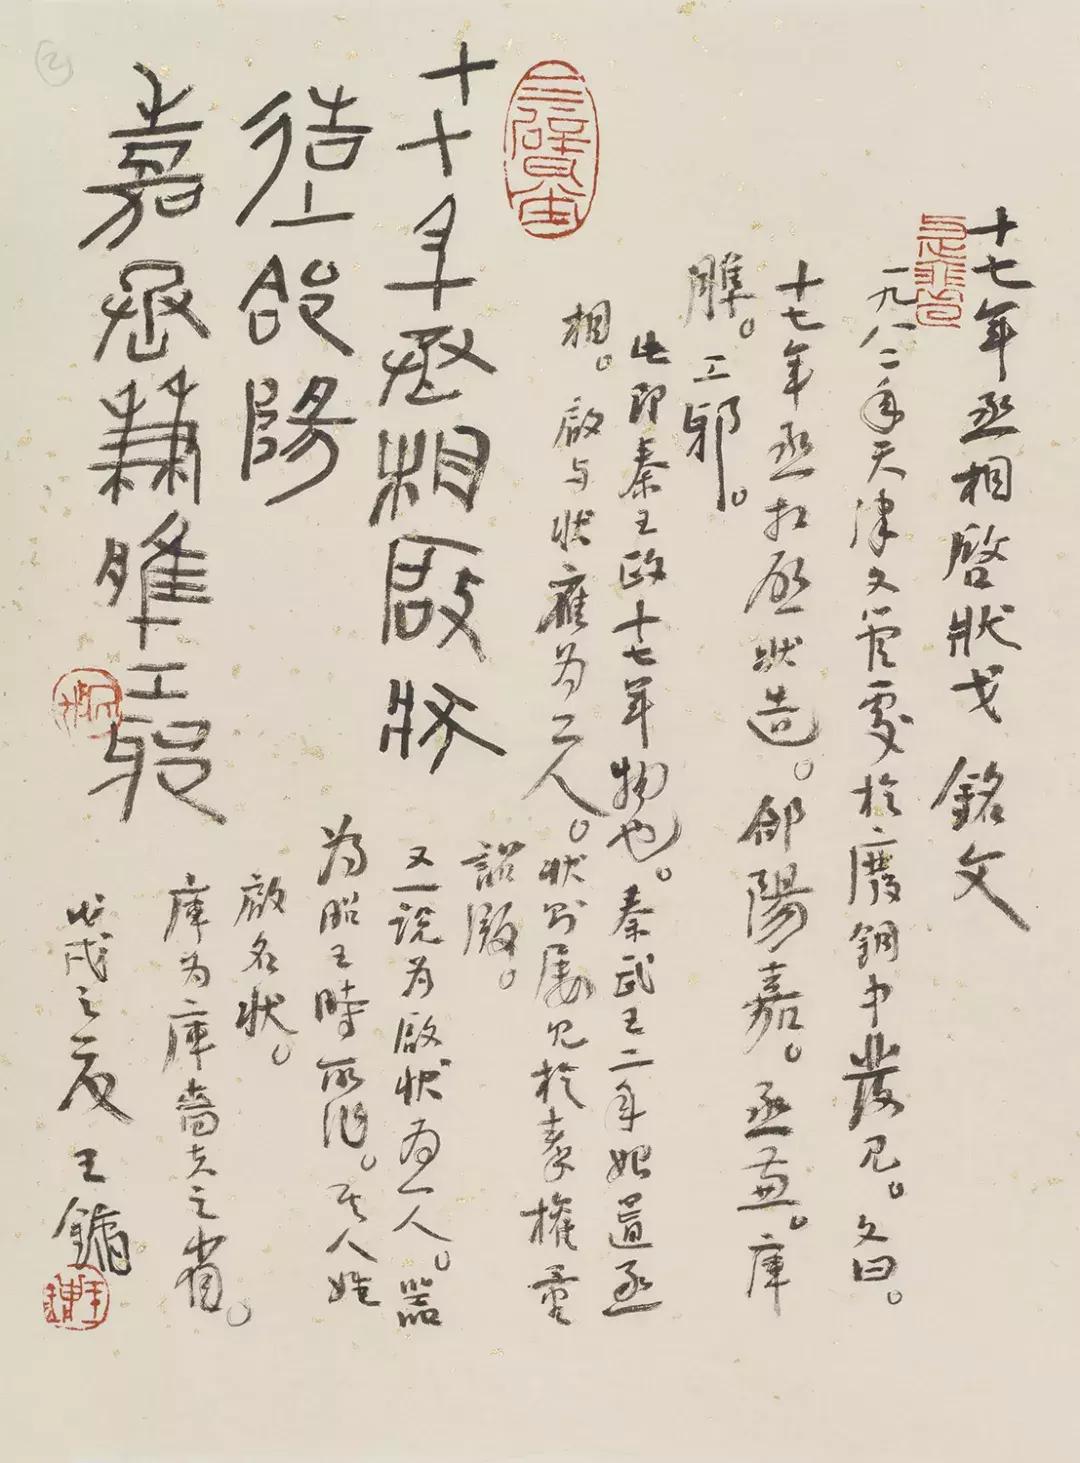 十七年丞相啓狀戈銘文
一九八二年天津文管處於廢銅中發見。文曰。
十七年丞相啟狀造。郃陽嘉。丞兼。庫
脽。工邪。
此即秦王政十七年物也。秦武王二年始置丞
相。啟与狀應为二人。狀則屢見於秦權量
詔版。
又一说为啟狀为一人。器
为昭王時所作。其人姓
啟名狀。
庫为庫嗇夫之省。
十七年丞相啟狀
造郃陽
嘉丞兼庫脽工邪
戊戌之夏王鏞